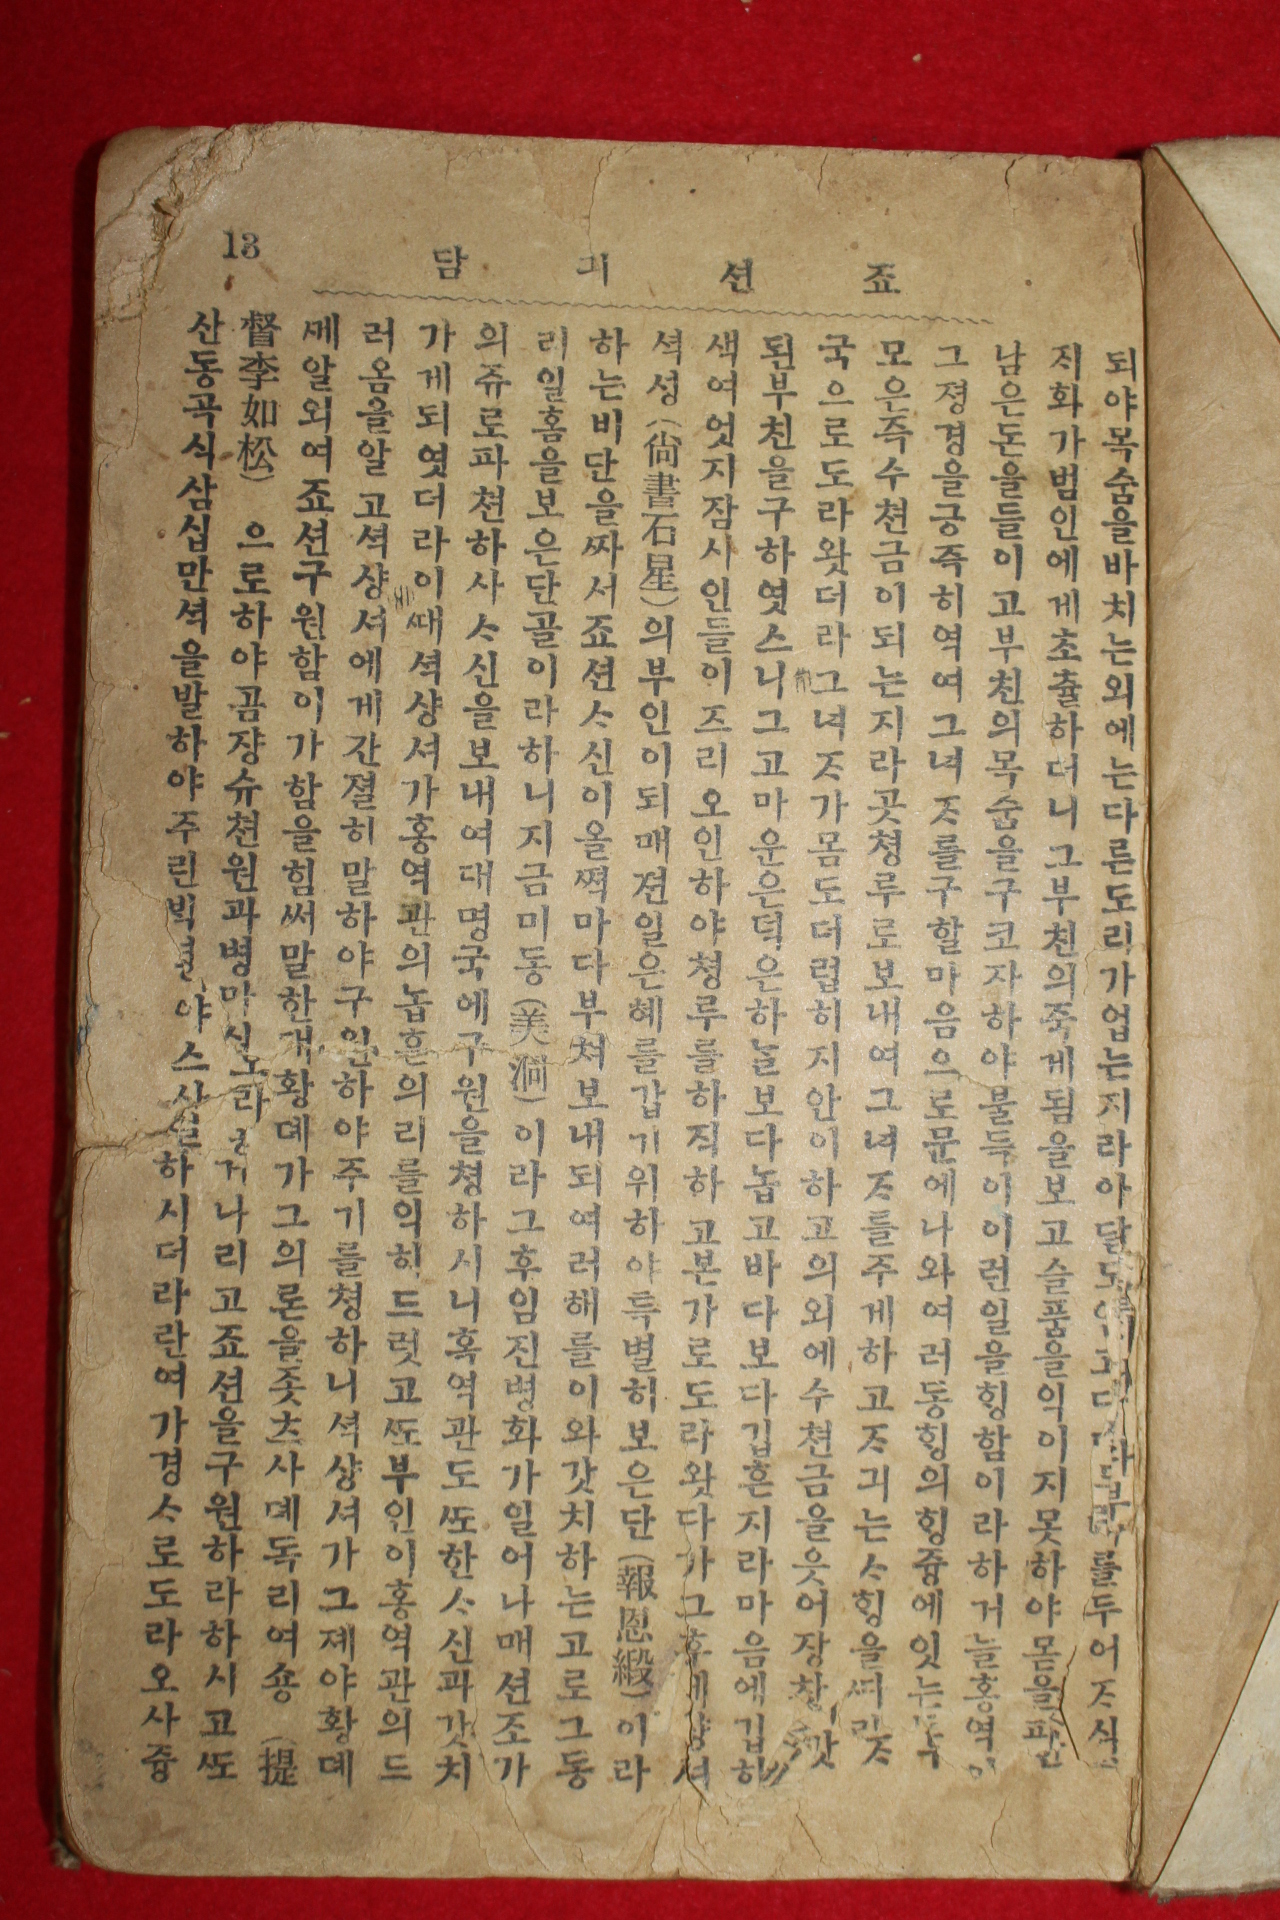 죠션긔담
13
되야목숨을바치는외에는다른도리가업는지라아달도업고다를두어ᄌᆞ식
지화가범인에게초츌하더니그부친의죽게됨을보고슬품을익이지못하야몸을판
남은돈을들이고부친의목숨을구코자하야불득이이런일을ᄒᆡᆼ함이라하거늘홍역
그졍경을긍측히역여그녀ᄌᆞ를구할마음으로문에나와여러동ᄒᆡᆼ의ᄒᆡᆼ즁에잇는
모은즉수쳔금이되는지라곳쳥루로보내여그녀ᄌᆞ를주게하고ᄌᆞ긔는ᄉᆞᄒᆡᆼ을ᄯᅡ
국으로도라왓더라그녀ᄌᆞ가몸도더럽히지안이하고의외에수쳔금을읏어장창갓
된부친을구하엿스니그고마운은덕은하ᄂᆞᆯ보다놉고바다보다깁흔지라마음에깁히
색여엇지잠시인들이즈리오인하야쳥루를하직하고본가로도라왓다가그후에샹셔
셕성(尙書石星)의부인이되매젼일은혜를갑기위하야특별히보은단(報恩緞)이라
하는비단을ᄶᅡ서죠션ᄉᆞ신이올ᄶᅥᆨ마다부쳐보내되여러해를이와갓치하는고로그동
리일홈을보은단골이라하니지금미동(美洞)이라그후임진병화가일어나매션조가
의쥬로파쳔하사ᄉᆞ신을보내여대명국에구원을쳥하시니혹역관도ᄯᅩ한ᄉᆞ신과갓치
가게되엿더라이ᄯᅢ셕샹셔가홍역관의놉흔의리를익히드럿고ᄯᅩ부인이홍역관의드
러옴을알고셕샹셔에게간졀히말하야구원하야주기를쳥하니셕샹셔가그졔야황뎨
ᄭᅦ알외여죠션구원함이가함을힘써말한대황뎨가그의론을좃ᄎᆞ사뎨독리여숑(提
督李如松)으로하야곰쟝슈쳔원과병마거나리고죠션을구원하라하시고ᄯᅩ
산동곡식삼십만셕을발하야주린ᄇᆡᆨ셩하시더라란여가경ᄉᆞ로도라오사즁